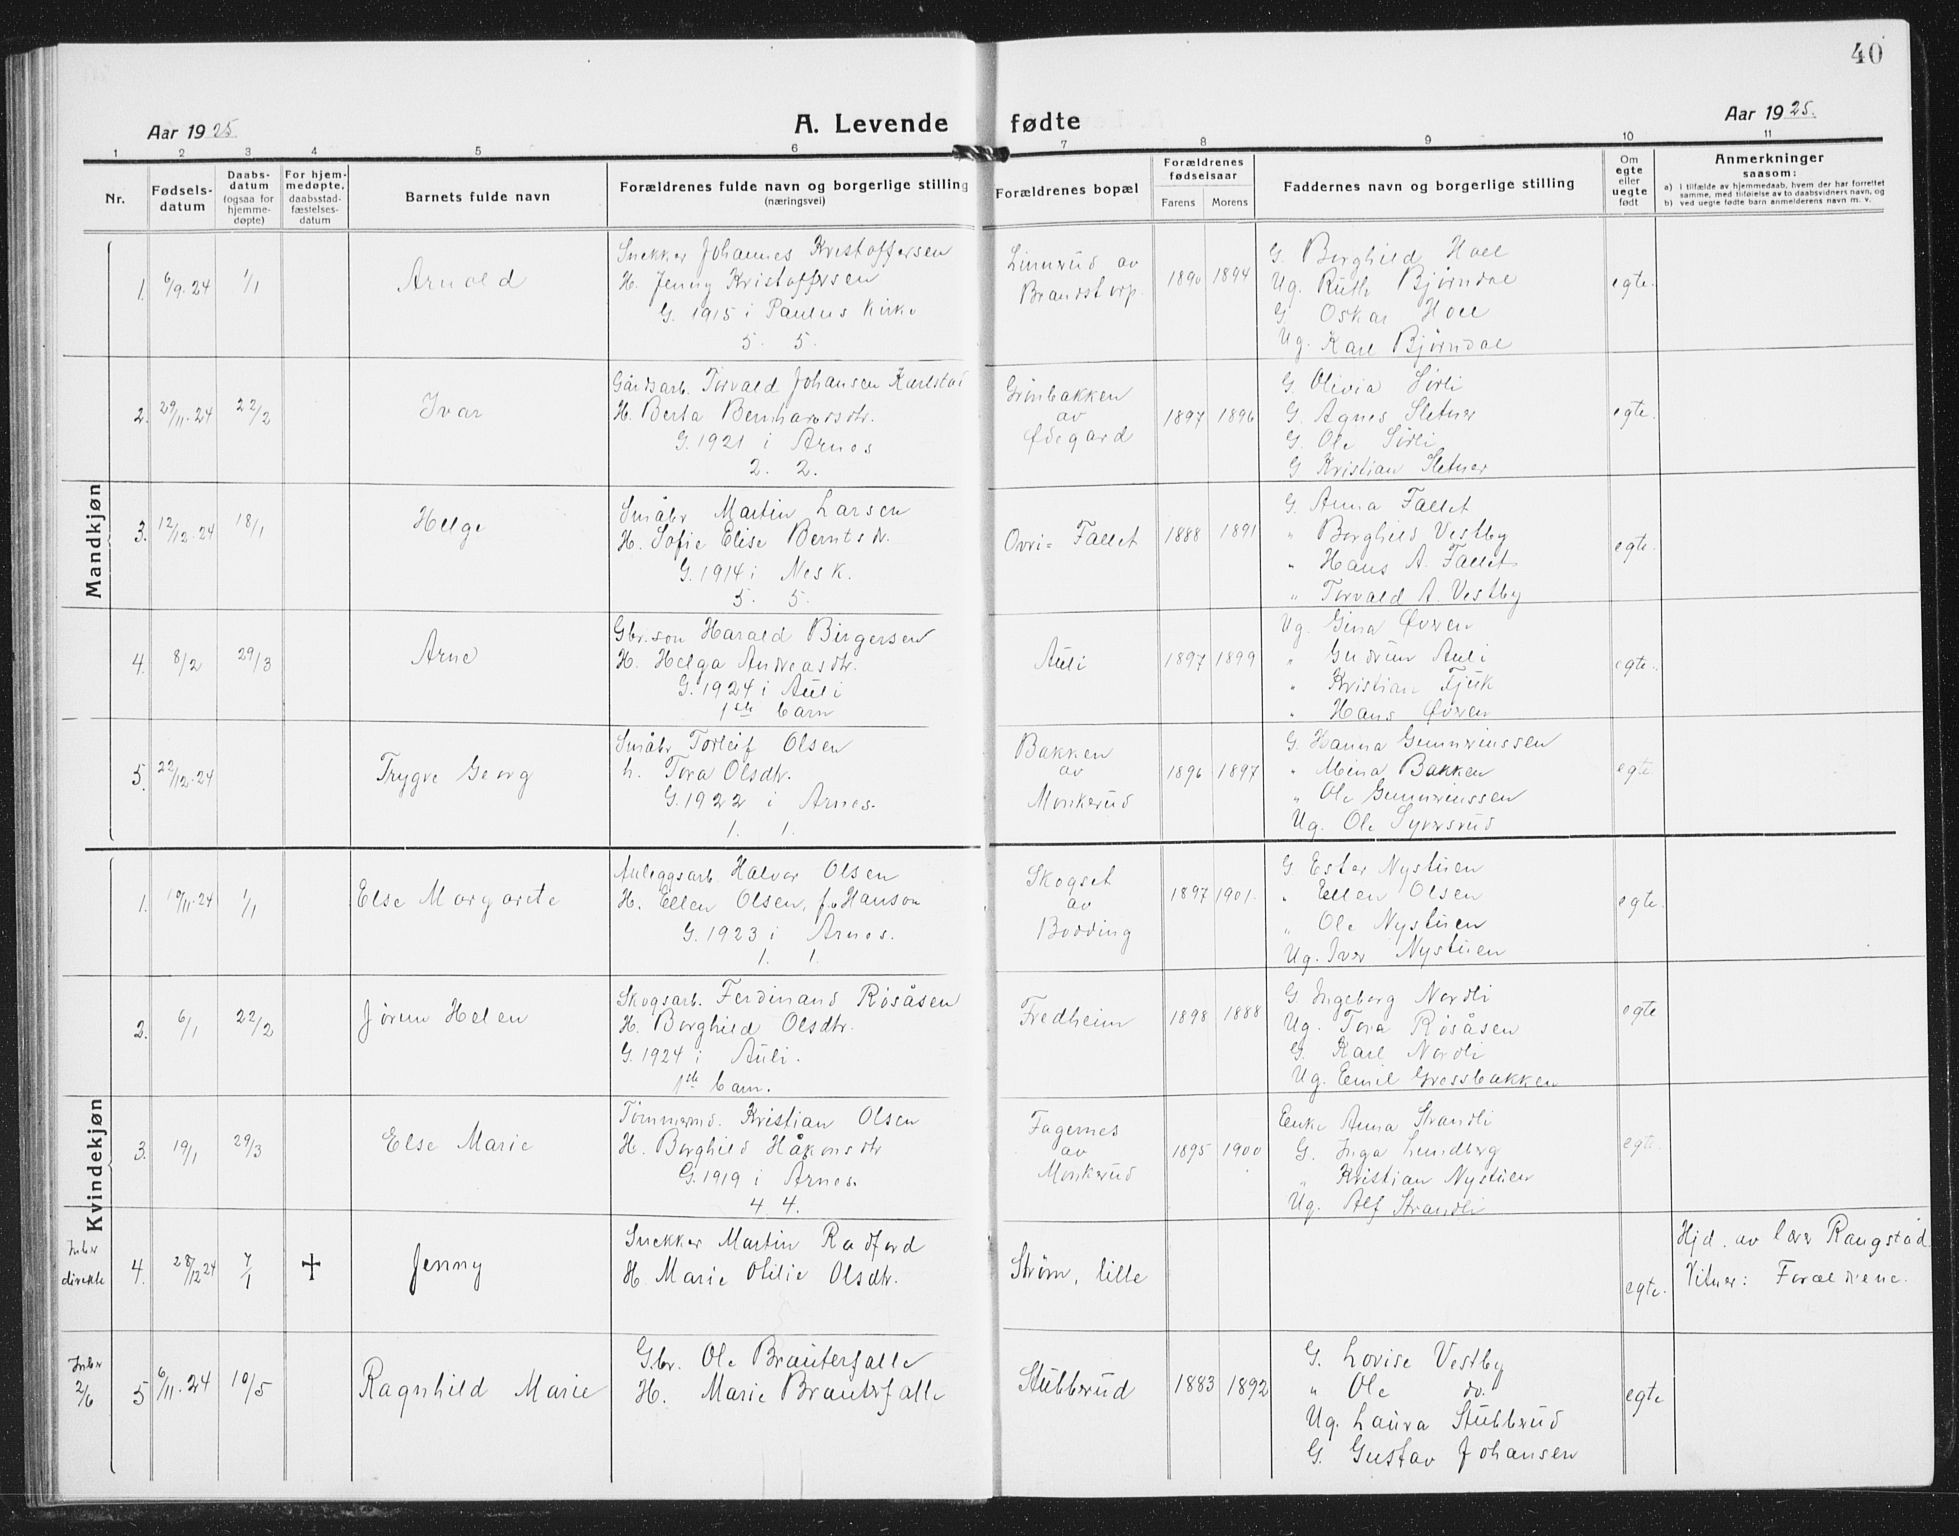 40
Aar 1925.
A. Levende fødte
Aar 1925.
1 2 3 4 5 6 7 8 9 10 11
Nr.
Fødselsdatum
Daabsdatum (ogsaa for hjemmedøpte)
For hjemmedøpte, daabsstadfæstelsesdatum
Barnets fulde navn
Forældrenes fulde navn og borgerlige stilling
(næringsvei)
Forældrenes bopæl
Forældrenes fødselsaar
Farens Morens
Faddernes navn og borgerlige stilling
Om egte eller uegte født
Anmerkninger
saasom:
a) i tilfælde av hjemmedaab, hvem der har forrettet
samme, med tilføielse av to daabsvidners navn, og
b) ved uegte fødte barn anmelderens navn m. v.
Mandkjøn
1. 6/9.24 1/1 Arnold
Snekker Johannes Kristoffersen
H. Jenny Kristoffersen
G. 1915 i Paulus Kirke
5. 5.
Linnerud av
Brandstorp.
1890 1894
G. Borghild Hoel
Ug. Ruth Bjørndal
G. Oskar Hoel
Ug. Karl Bjørndal
egte.
2. 29/11.24 22/2 Ivar
Gårdsarb. Torvald Johansen Karlstad
H. Berta Bernhardsdtr.
G. 1921 i Arnes
2. 2.
Grønbakken
av
Ødegard
1897 1896
G. Olivia Sørli
G. Agnes Sletner
G. Ole Sørli
G. Kristian Sletner
egte.
3. 12/12.24 18/1 Helge
Småbr Martin Larsen
H. Sofie Elise Berntsdr.
G. 1914 i Nesk.
5. 5.
Øvri= Fallet
1888 1891
G. Anna Fallet
" Borghild Vestby
" Hans A. Fallet
" Torvald A. Vestby
egte.
4. 8/2 29/3 Arne
Gbr.son Harald Birgersen
H. Helga Andreasdtr.
G. 1924 i Auli
1ste barn
Auli
1897 1899
Ug. Gina Øvren
" Gudrun Auli
" Kristian Fjuk
" Hans Øvren
egte.
5. 22/12.24 Trygve Georg
Småbr Torleif Olsen
h. Tora Olsdtr.
G. 1922 i Arnes.
1. 1.
Bakken
av
Monkerud
1896 1897
G. Hanna Gunnreinssen
" Mina Bakken
" Ole Gunnreinssen
Ug. Ole Syversrud
egte
Kvindekjøn
1. 10/11.24 1/1 Else Margarete
Anleggsarb. Halvor Olsen
H. Ellen Olsen, f. Hanson
G. 1923 i Arnes.
1. 1.
Skogset
av
Bodding
1897 1901.
G Ester Nystuen
" Ellen Olsen
" Ole Nystuen
Ug. Iver Nystuen
egte.
2. 6/1 22/2 Jørun Helen
Skogsarb. Ferdinand Røsåsen
H. Borghild Olsdtr.
G. 1924 i Auli.
1ste barn.
Fredheim
1898 1888
G Ingeborg Nordli
Ug. Tora Røsåsen
G. Karl Nordli
Ug. Emil Grossbakken
egte
3. 19/1 29/3 Else Marie
Tømmermd. Kristian Olsen
H. Borghild Håkonsdtr
G. 1919 i Arnes.
4 4.
Fagernes
av
Monkerud
1895 1900
Enke Anna Strandli
G. Inga Lundberg
" Kristian Nystuen
Ug. Alf Strandli
egte.
Inber direkte
4. 28/12 24 7/1 + Jenny
Snekker Martin Radford
H. Marie Otilie Olsdtr.
Strøm, lille
egte.
Hjd. av lærer Raugstad.
Vitner: Forældrene.
Inber 2/6
5 6/11.24 10/5 Ragnhild Marie
Gbr. Ole Brauterfalle
H. Marie Brauterfalle
Stubbrud
1883 1892
G. Lovise Vestby
" Ole do.
Ug. Laura Stubbrud
G. Gustav Johansen
egte